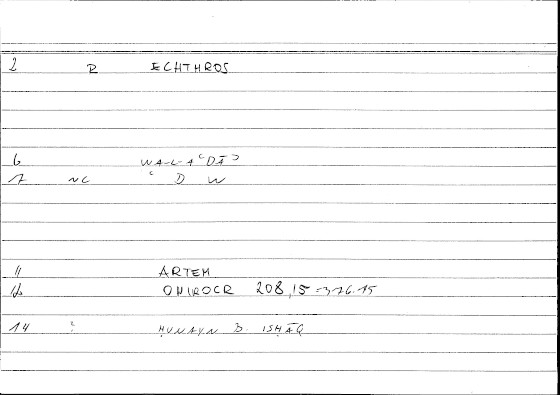 2 R ECHTHROS
6 WA-L-Aʿ DĀʾ
7 NC ʿ D W
11 ARTEM
12 ONIROCR 208,15 = 376.15
14 : ḤUNAYN B. ISḤĀQ